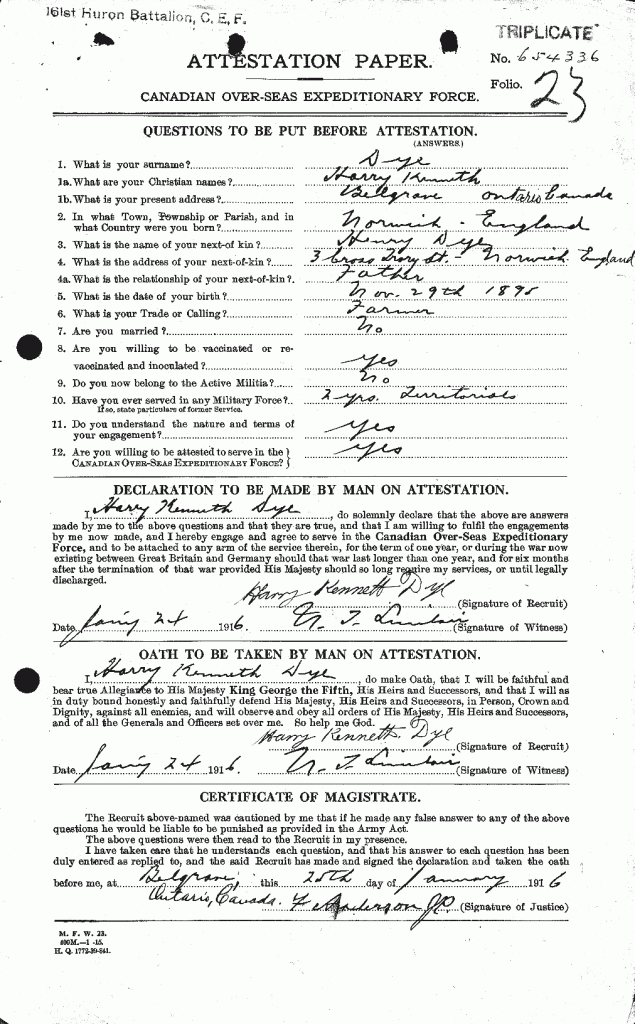 161st Huron Battalion, C. E. F.
TRIPLICATE
ATTESTATION PAPER.
No. 654336
Folio. 23
CANADIAN OVER-SEAS EXPEDITIONARY FORCE.
QUESTIONS TO BE PUT BEFORE ATTESTATION.
(ANSWERS.)
1. What is your surname? Dye
1a. What are your Christian names? Harry Kenneth
1b. What is your present address? Belgrave ontario Canada
2. In what Town, Township or Parish, and in
what Country were you born? Norwich - England
3. What is the name of your next-of kin? Henry Dye
4. What is the address of your next-of-kin? 3 Cross St. - Norwich England
4a. What is the relationship of your next-of-kin? Father
5. What is the date of your birth? Nov. 29th 1895
6. What is your Trade or Calling? Farmer
7. Are you married? No
8. Are you willing to be vaccinated or re-
vaccinated and inoculated? Yes
9. Do you now belong to the Active Militia? No
10. Have you ever served in any Military Force? 2 yrs. Territorials
If so, state particulars of former Service.
11. Do you understand the nature and terms of
your engagement? Yes
12. Are you willing to be attested to serve in the }
CANADIAN OVER-SEAS EXPEDITIONARY FORCE? } Yes
DECLARATION TO BE MADE BY MAN ON ATTESTATION.
I, Harry Kenneth Dye, do solemnly declare that the above are answers
made by me to the above questions and that they are true, and that I am willing to fulfil the engagements
by me now made, and I hereby engage and agree to serve in the Canadian Over-Seas Expeditionary
Force, and to be attached to any arm of the service therein, for the term of one year, or during the war now
existing between Great Britain and Germany should that war last longer than one year, and for six months
after the termination of that war provided His Majesty should so long require my services, or until legally
discharged.
Harry Kenneth Dye (Signature of Recruit)
Date Jan'y 24 1916. N. T. Sinclair (Signature of Witness)
OATH TO BE TAKEN BY MAN ON ATTESTATION.
I, Harry Kenneth Dye, do make Oath, that I will be faithful and
bear true Allegiance to His Majesty King George the Fifth, His Heirs and Successors, and that I will as
in duty bound honestly and faithfully defend His Majesty, His Heirs and Successors, in Person, Crown and
Dignity, against all enemies, and will observe and obey all orders of His Majesty, His Heirs and Successors,
and of all the Generals and Officers set over me. So help me God.
Harry Kenneth. Dye (Signature of Recruit)
Date Jan'y 24 1916 N. T. Sinclair (Signature of Witness)
CERTIFICATE OF MAGISTRATE.
The Recruit above-named was cautioned by me that if he made any false answer to any of the above
questions he would be liable to be punished as provided in the Army Act.
The above questions were then read to the Recruit in my presence.
I have taken care that he understands each question, and that his answer to each question has been
duly entered as replied to, and the said Recruit has made and signed the declaration and taken the oath
before me, at Belgrave, this 25th day of January 1916
Ontario, Canada. F Anderson JP (Signature of Justice)
M. F. W. 23.
400M.-1 -15.
H. Q. 1772-39-841.